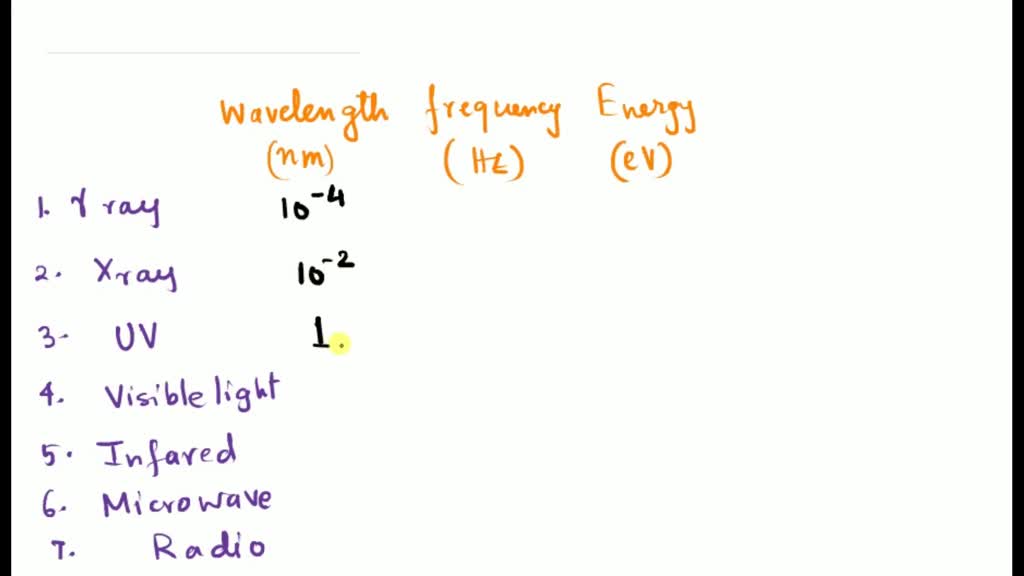 Wavelength frequency Energy
(nm) (Hz) (eV)
1. γ ray 10⁻⁴
2. X ray 10⁻²
3. UV 1.
4. Visible light
5. Infared
6. Microwave
7. Radio